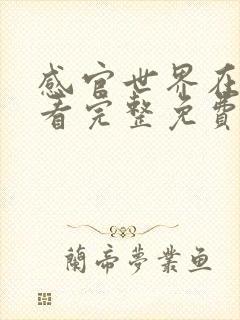 感官世界在
看完整免费
蘭帝夢業鱼